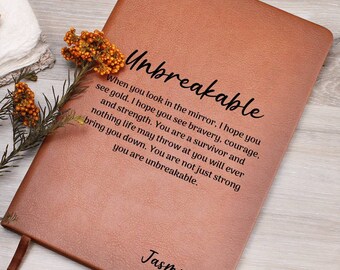 Unbreakable
When you look in the mirror, I hope you
see gold. I hope you see bravery, courage,
and strength. You are a survivor and
nothing life may throw at you will ever
bring you down. You are not just strong
you are unbreakable.